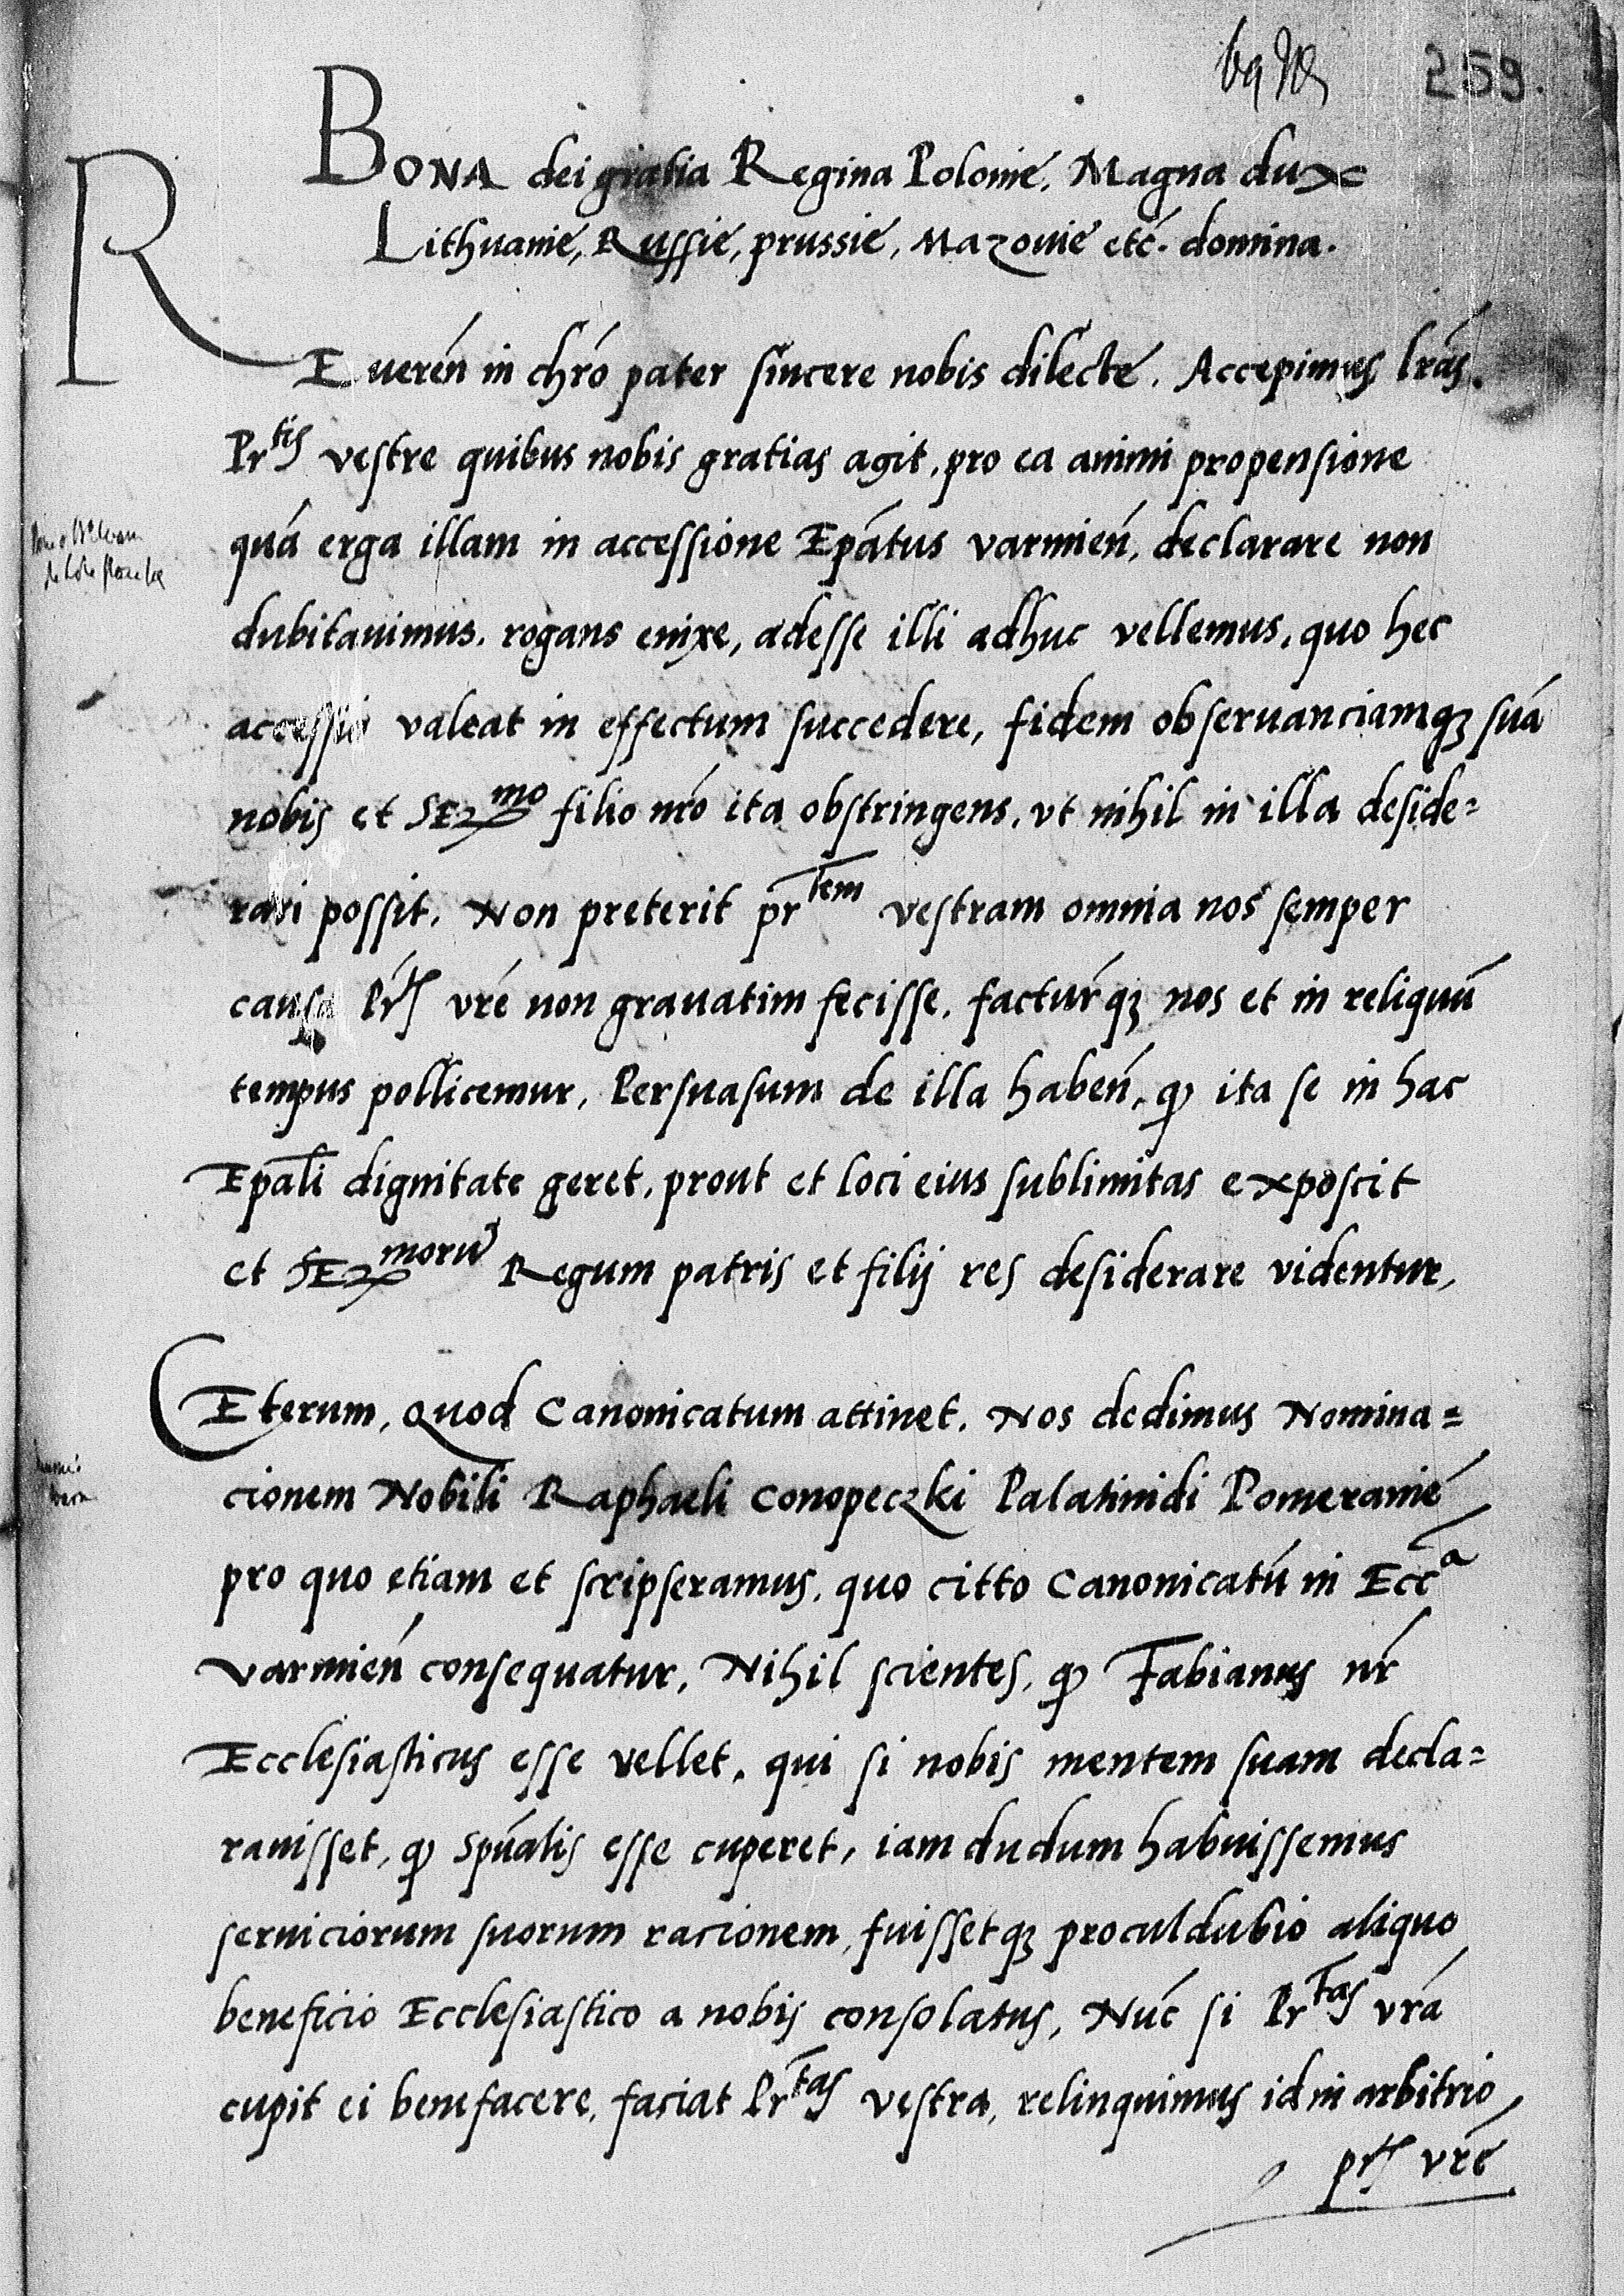 259.
BONA dei gratia Regina Polonie. Magna dux
Lithuanie, Russie, prussie, Mazouie etc. domina.
REuereń in chr̃o pater sincere nobis dilecte. Accepimus lr̃as
Pr^tis vestre quibus nobis gratias agit, pro ea animi propensione
quá erga illam in accessione Ep̃atus varmień, declarare non
dubitauimus. rogans enixe, adesse illi adhuc vellemus, quo hec
accessio valeat in effectum succedere, fidem obseruanciamqȝ suá
nobis et SER^mo filio nr̃o ita obstringens, vt nihil in illa deside=
rari possit. Non preterit pr^tem vestram omnia nos semper
causa Pr^tis vr̃e non grauatim fecisse, factuŕqȝ nos et in reliquũ
tempus pollicemur, Persuasum de illa habeń, ꝙ ita se in hac
Ep̃ali dignitate geret, prout et loci eius sublimitas exposcit
et SER^morũ Regum patris et filij res desiderare videntur,
CEterum, Quod Canonicatum attinet. Nos dedimus Nomina=
cionem Nobili Raphaeli Conopeczki Palatinidi Pomeranie
pro quo etiam et scripseramus, quo citto Canonicatú in Ecc^a
varmień consequatur, Nihil scientes, ꝙ Fabianus nr̃
Ecclesiasticus esse vellet, qui si nobis mentem suam decla=
rauisset, ꝙ Spúalis esse cuperet, iam dudum habuissemus
seruiciorum suorum racionem, fuissetqȝ proculdubio aliquo
beneficio Ecclesiastico a nobis consolatus, Núc si Pr^tas vr̃a
cupit ei benefacere, faciat Pr^tas vestra, relinquimus id in arbitrio
pr^tis vr̃e